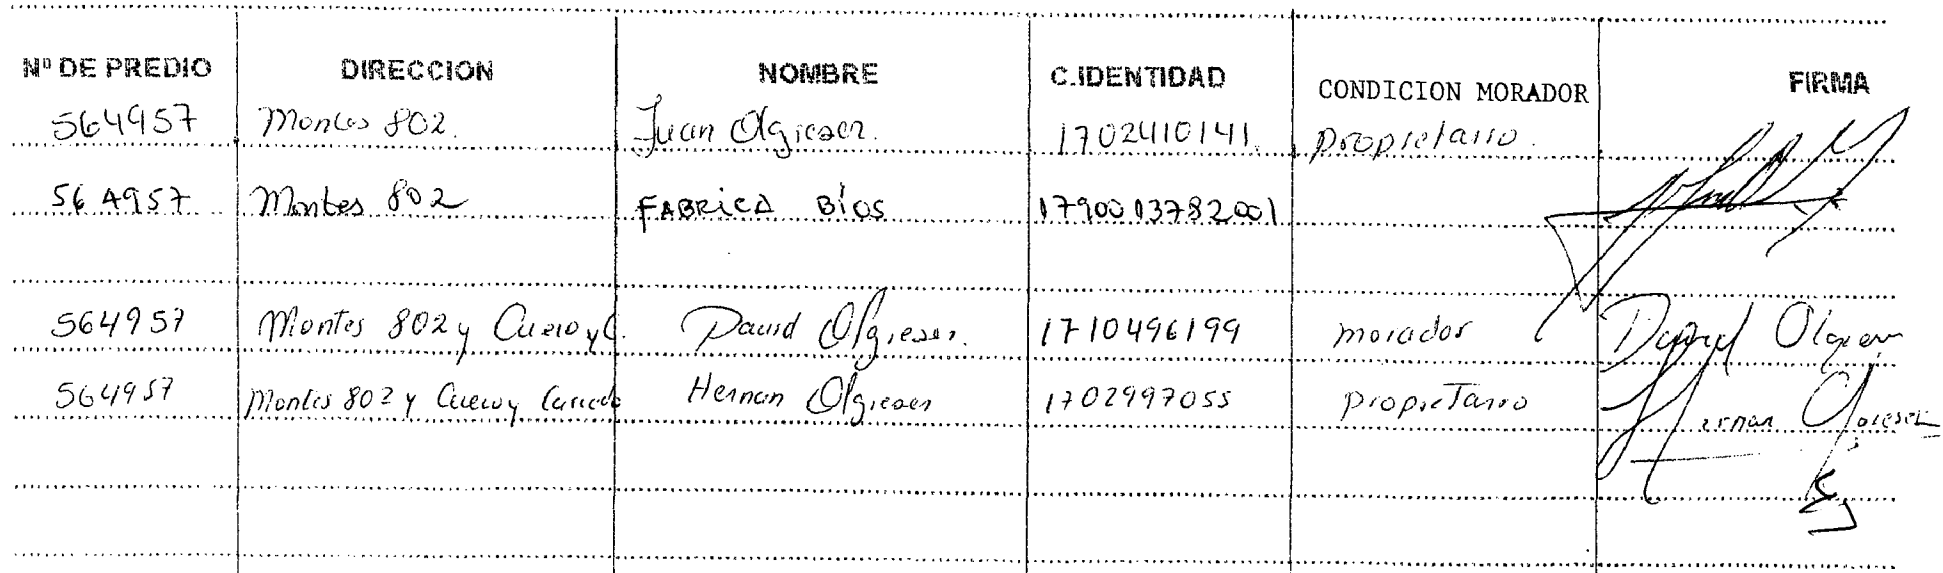 Nº DE PREDIO DIRECCION NOMBRE C.IDENTIDAD CONDICION MORADOR FIRMA
564957 Montes 802. Juan Olgieser. 1702410141 propietario.
564957 Montes 802 FABRICA BíOS 1790013782001
564957 Montes 802 y Cuero y C. David Olgieser. 1710496199 morador David Olgieser
564957 Montes 802 y Cuero y Caicedo Hernan Olgieser 1702997055 propieTario Hernan Olgieser